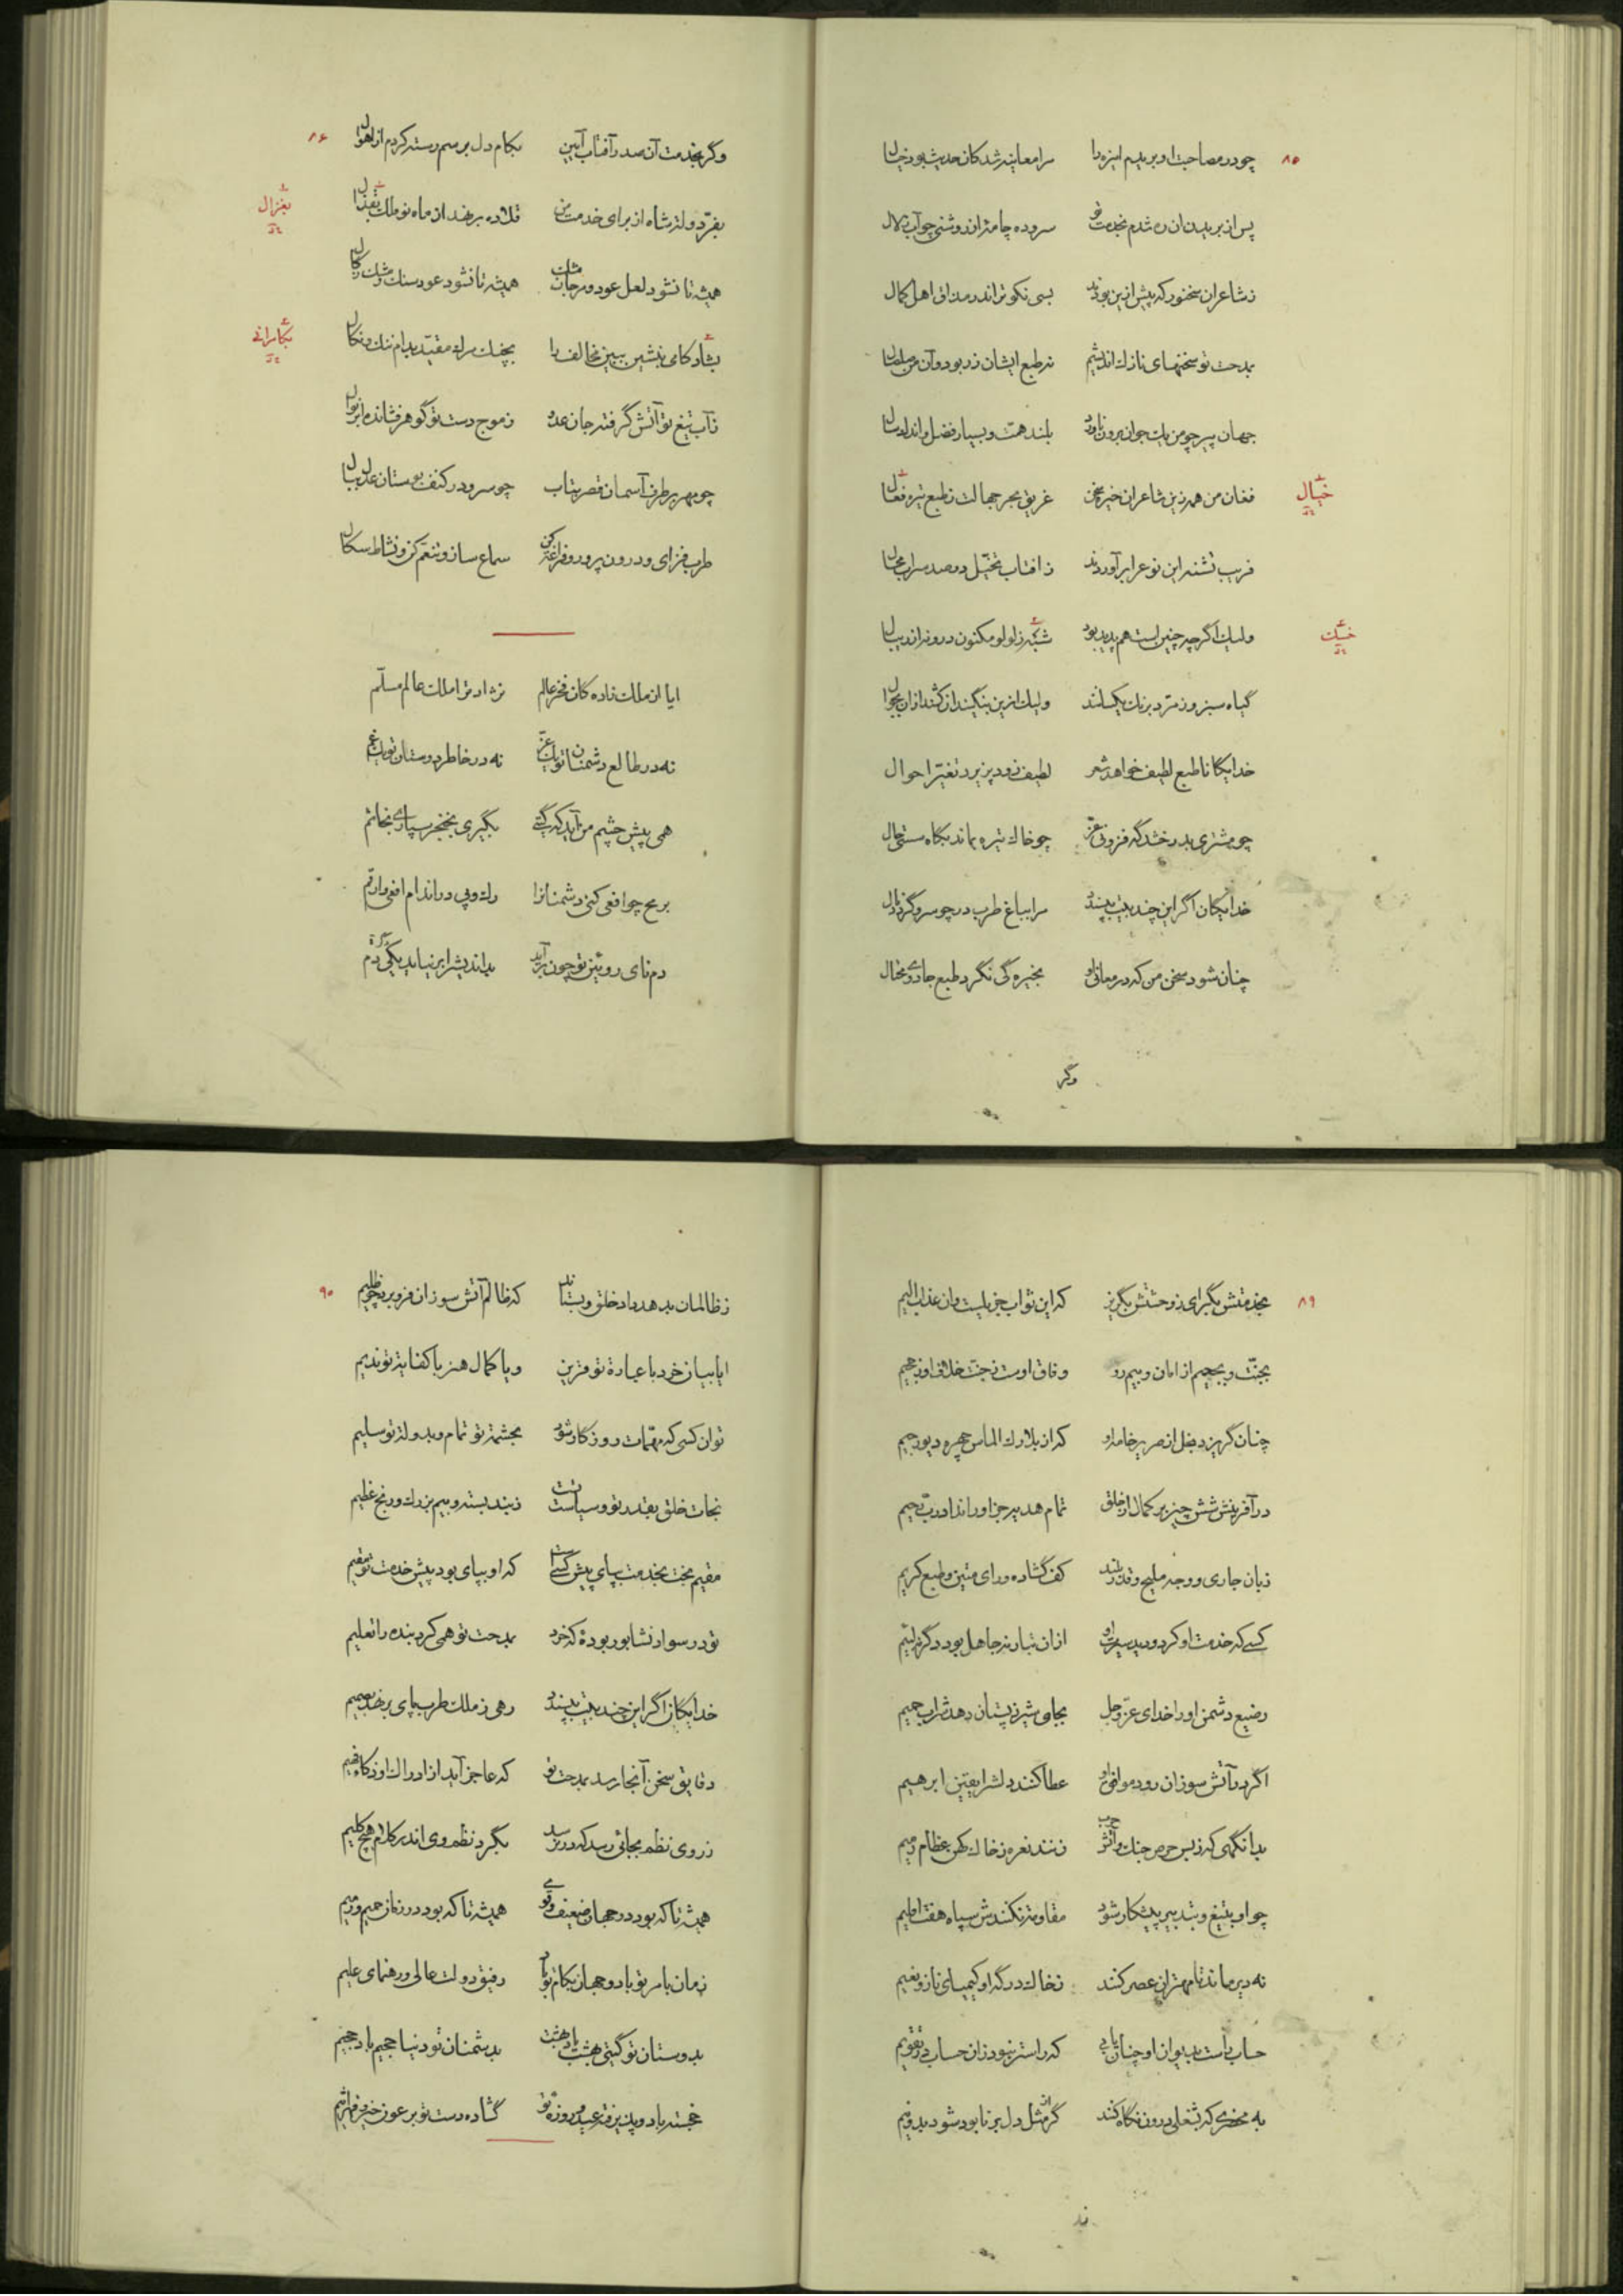 ۸۵
چو در مصاحبت او بریدم این ره را مرا معاینه شد کان حدیث بود خیال
پس از بریدن آن ره شدم بخدمت سروده چامهٔ از روشنی چو آب زلال
ز شاعران سخنور که پیش ازین بودند بسی نکوتر اندر مذاق اهل کمال
بمدحت تو سخنهای نازک اندیشم نه طبع ایشان دزد بود و آن من
جهان پیر چو من یک جوان برون نارد بلند همت و بسیار فضل و اندک سال
فغان من همه زین شاعران خیره سخن غریق بحر جهالت ز طبع تیره فعال
خیال
فریب تشنه این نوع را برآوردند ز آفتاب تخیل دو صد سراب محال
ولیک اگرچه چنین است هم پدید بود شبه ز لولو مکنون درونه اندر بال
گیاه سبز و زمرد برنگ یکسانند ولیک ازین بنگین دان کنند ازان بجوال
خدایگانا طبع لطیف خواهد شعر لطیف زود پذیرد تغیر احوال
چو مشتری بدرخشد گه فزونی عز چو خاک تیره بماند بگاه سستی حال
خدایگان اگر این چند بیت بپسندد مرا بباغ طرب در چو سرو گردد نال
چنان شود سخن من که در معانی او بخیره گی نگرد طبع جادوی محتال
وگر
۸۶
وگر بخدمت آن صدر آفتاب آیین بکام دل برسم رسته گردم از اهوال
بفر دولت شاه از برای خدمت من قلاده بر نهد از ماه نو فلک
بغزال
همیشه تا نشود لعل عود و مرجان مشک همیشه تا نشود عود سنگ و مشک زکال
بشاد کامی بنشین ببین مخالف را بچنگ مرگ مقید بدام ننگ و نکال
بکامرانی
ز آب تیغ تو آتش گرفته جان عدو ز موج دست تو گوهر فشانده ابر نوال
چو مهر بر طرف آسمان قصر بتاب چو سرو در کنف بوستان عدل ببال
طرب فزای و درون پرور و فراغت کن سماع ساز و تنعم کن و نشاط سگال
ایا از ملک زاده گان فخر عالم نژاد ترا ملک عالم مسلم
نه در طالع دشمنان تو یک عز نه در خاطر دوستان تو یک غم
همی پیش چشم من آید که گیتی بگیری بخنجر سپاری بخاتم
برمح چو افعی کنی دشمنانرا رگ و پی در اندام افعی ارقم
دم نای رویین تو چون برآید بداندیش را بر نیاید یکی دم
۸۹
بخدمتش بگرای و ز وحشتش بگریز که این ثواب جزیلست و ان عذاب الیم
بجنت و بجحیم از امان و بیم رود وفاق اوست ز جنت خلاف او ز جحیم
چنان گریزد بخل از صریر خامه او که از بلارک الماس چهره دیو رجیم
در آفرینش شش چیز بر کمال از خلق تمام هدیه جز او را نداد رب رحیم
زبان جاری و وجه ملیح و قدر بلند کف گشاده و رای متین و طبع کریم
کسی که خدمت او کرد و دید سیرت او ازان تبار نه جاهل بود دگر نه لئیم
رضیع دشمن او را خدای عز و جل بجای شیر ز پستان دهد شراب حمیم
اگر در آتش سوزان رود موافق او عطا کنند دلش را یقین ابرهیم
بدانگهی که ز بس حرص جنگ و آتش حرب زنند نعره ز خاک کهن عظام رمیم
چو او بتیغ و بتدبیر پیشکار شود مقاومت نکندش سپاه هفت اقلیم
نه دیر ماند تا مهتران عصر کنند ز خاک درگه او کیمیای ناز و نعیم
حساب راست بدیوان او چنان یابی که راست تر نبود زان حساب در تقویم
به محضری که تفعلی درو نگاه کند گرش مثل دل برنا بود شود بدو نیم
۹۰
ز ظالمان بدهد داد خلق و بستاند که ظالم آتش سوزان فرو برد چو ظلیم
ایا بیان خرد با عبارة تو قرین و یا کمال هنر با کفایة تو ندیم
توان کسی که مهمات روزگار شود بحشمت تو تمام و بدولت تو سلیم
نجات خلق بقدر تو و سیاست تست ز بند بسته و بیم بزرگ و رنج عظیم
مقیم بخت بخدمت بپای پیش کسیست که او بپای بود پیش خدمت تو مقیم
تو در سواد نشابور بودهٔ که خرد بمدحت تو همی کرد بنده را تعلیم
خدایگان اگر این چند بیت بپسندد رهی ز ملک طرب پای بر نهد بنعیم
دقایق سخن آنجا رسد بمدحت تو که عاجز آید از ادراک او ذکاء فهیم
ز روی نظم بجائی رسد که در نرسد بگرد نظم وی اندر کلام هیچ کلیم
همیشه تا که بود در جهان ضعیف و قوی همیشه تا که بود در زمان حمیم و رمیم
زمان بامر تو باد و جهان بکام تو باد رفیق دولت عالی و رهنمای علیم
بدوستان تو گیتی بهشت باد بهشت بدشمنان تو دنیا جحیم باد جحیم
خجسته باد و پذیرفته عید و روزه تو گشاده دست تو بر عون خیر و قهر اثیم